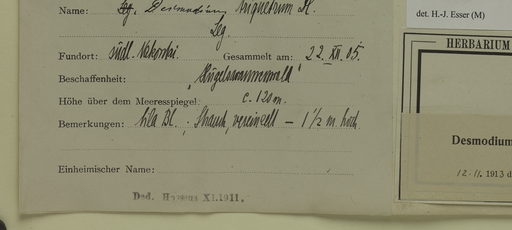 det. H.-J. Esser (M)
Name: Desmodium
Leg.
Fundort: südl. Gesammelt am: 22. XII. 05.
Beschaffenheit:
Höhe über dem Meeresspiegel: c. 120 m.
Bemerkungen: lila Bl.; Strauch, vereinzelt – 1 1/2 m hoch
Einheimischer Name:
Ded. Hosseus XI.1911.
HERBARIUM
Desmodium
12.11. 1913 d